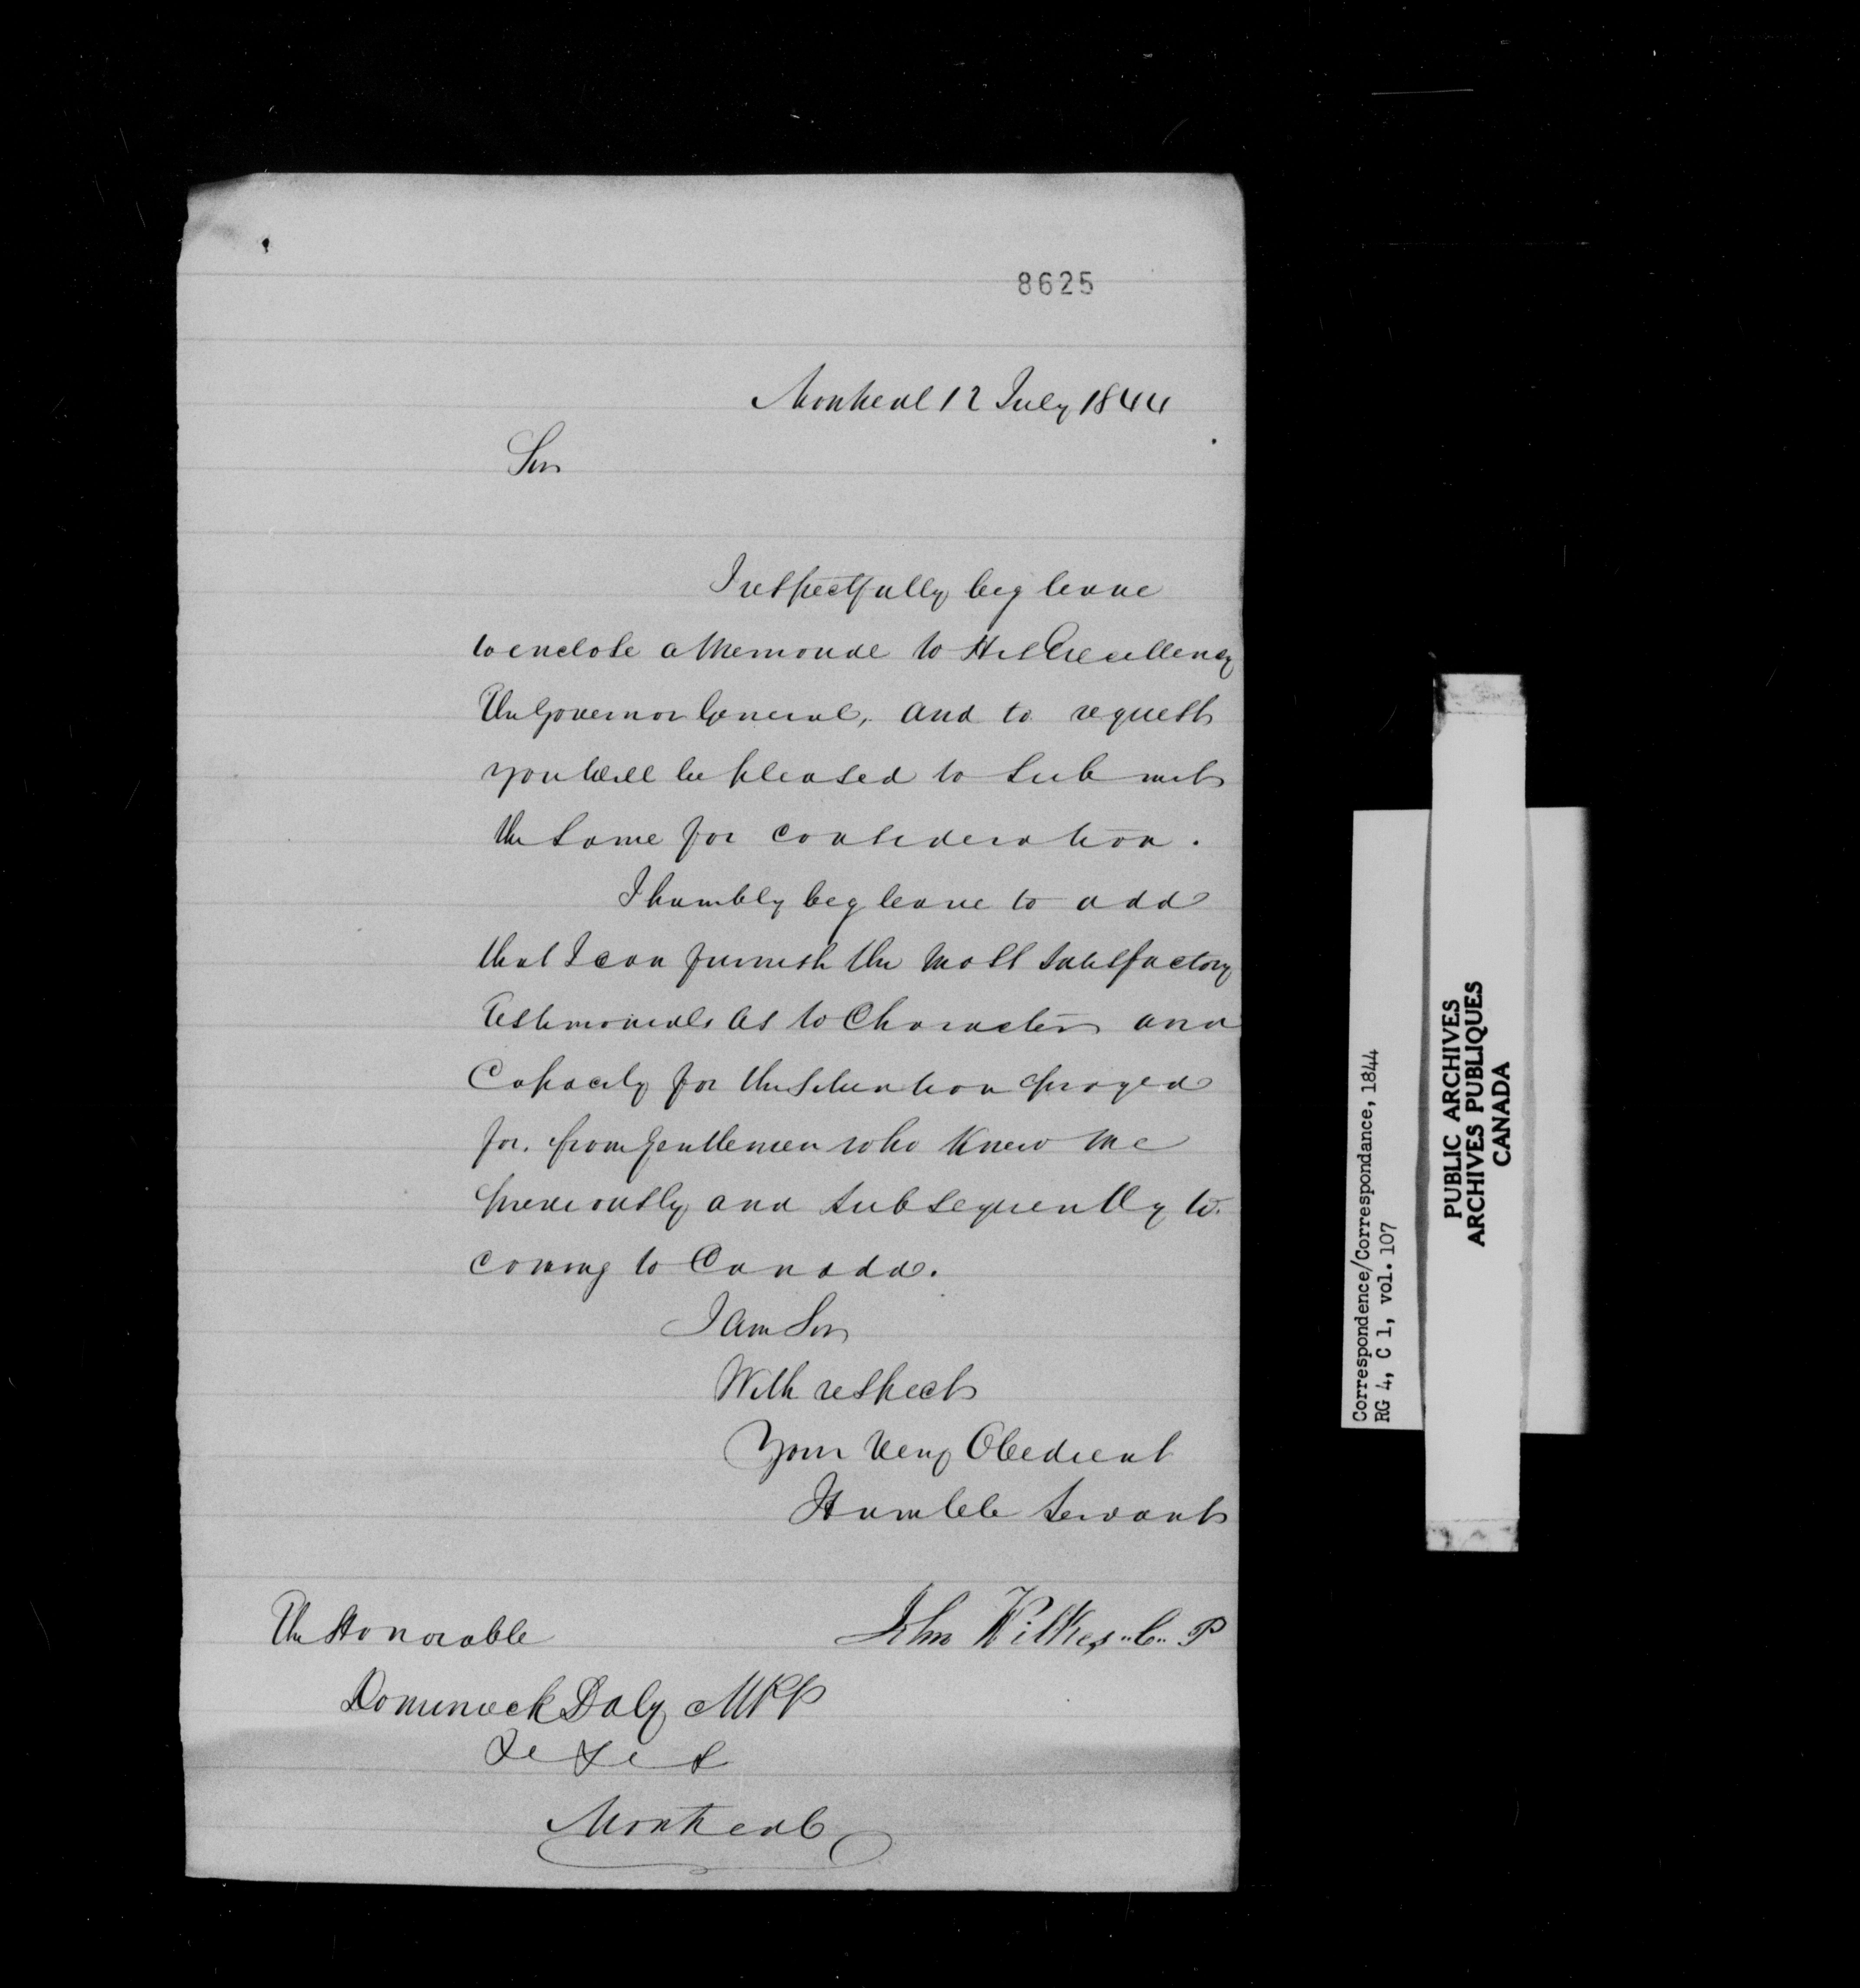 8625
Montreal 12 July 1844
Sir
I respectfully beg leave
to enclose a Memorial to His Excellency
The Governor General, and to request
you will be pleased to submit
the same for consideration.
I humbly beg leave to add
that I can furnish the most satisfactory
Testimonials as to Character and
Capacity for the situation prayed
for, from Gentlemen who knew me
previously and subsequently to
coming to Canada.
I am Sir
With respect
Your very Obedient
Humble Servant
John Wilkes C. P
The Honorable
Dominick Daly MPP
&c &c &
Montreal
Correspondence/Correspondance, 1844
RG 4, C 1, vol. 107
PUBLIC ARCHIVES
ARCHIVES PUBLIQUES
CANADA